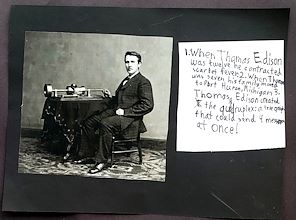 1. When Thomas Edison
was twelve he contracted
scarlet fever. 2. When Thomas
was seven his family moved
to Port Huron, Michigan 3.
Thomas Edison created
the quadruplex: a telegraph
that could send 4 messages
at once!